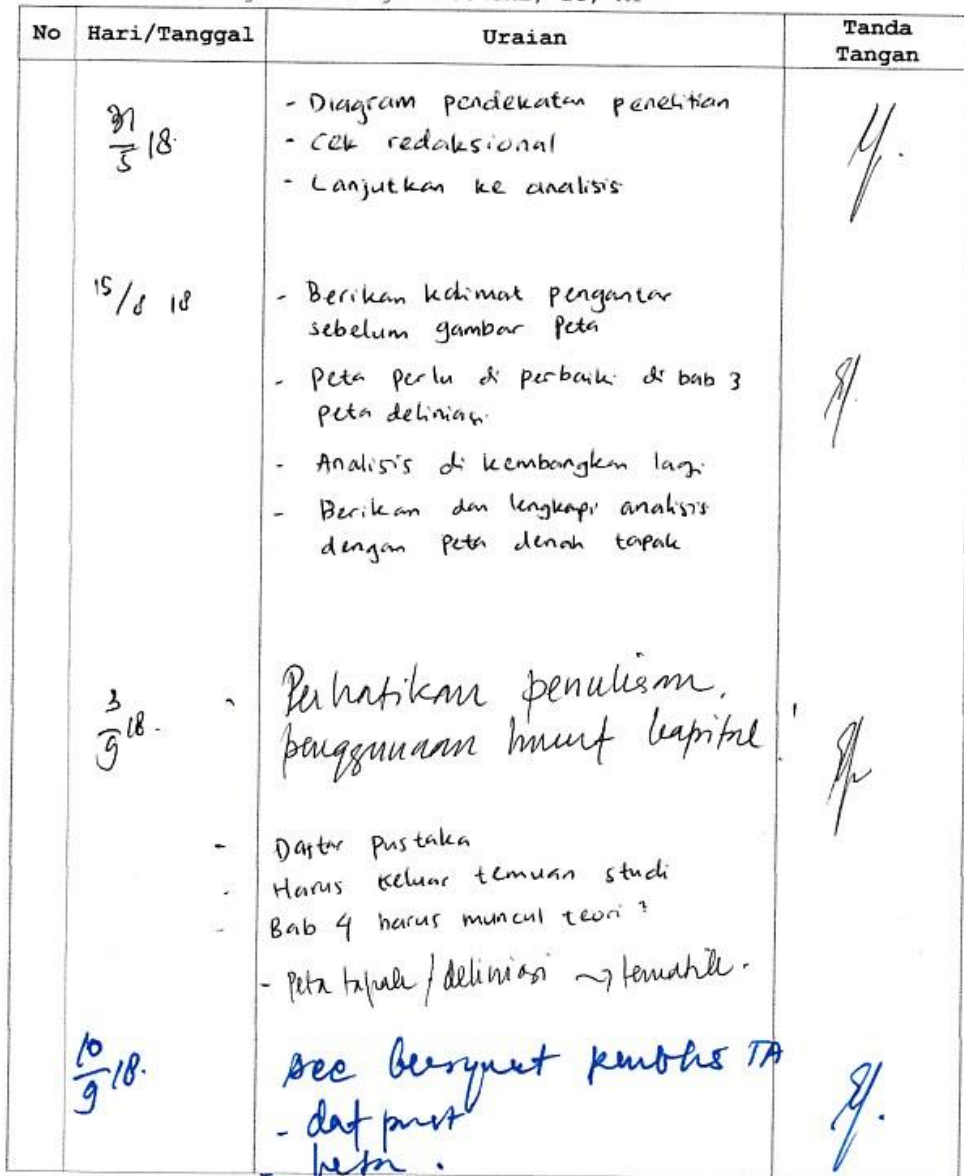 No Hari/Tanggal Uraian Tanda Tangan
31/5 18
- Diagram pendekatan penelitian
- Cek redaksional
- Lanjutkan ke analisis
15/8 18
- Berikan kalimat pengantar
sebelum gambar peta
- Peta perlu di perbaiki di bab 3
peta deliniasi
- Analisis di kembangkan lagi
- Berikan dan lengkapi analisis
dengan peta denah tapak
3/9 18.
Perhatikan penulisan,
penggunaan huruf kapital !
- Daftar pustaka
- Harus keluar temuan studi
- Bab 4 harus muncul teori ²
- Peta tapak / deliniasi → tematik.
10/9 18.
acc bersyarat TA
- daf pust
- peta.